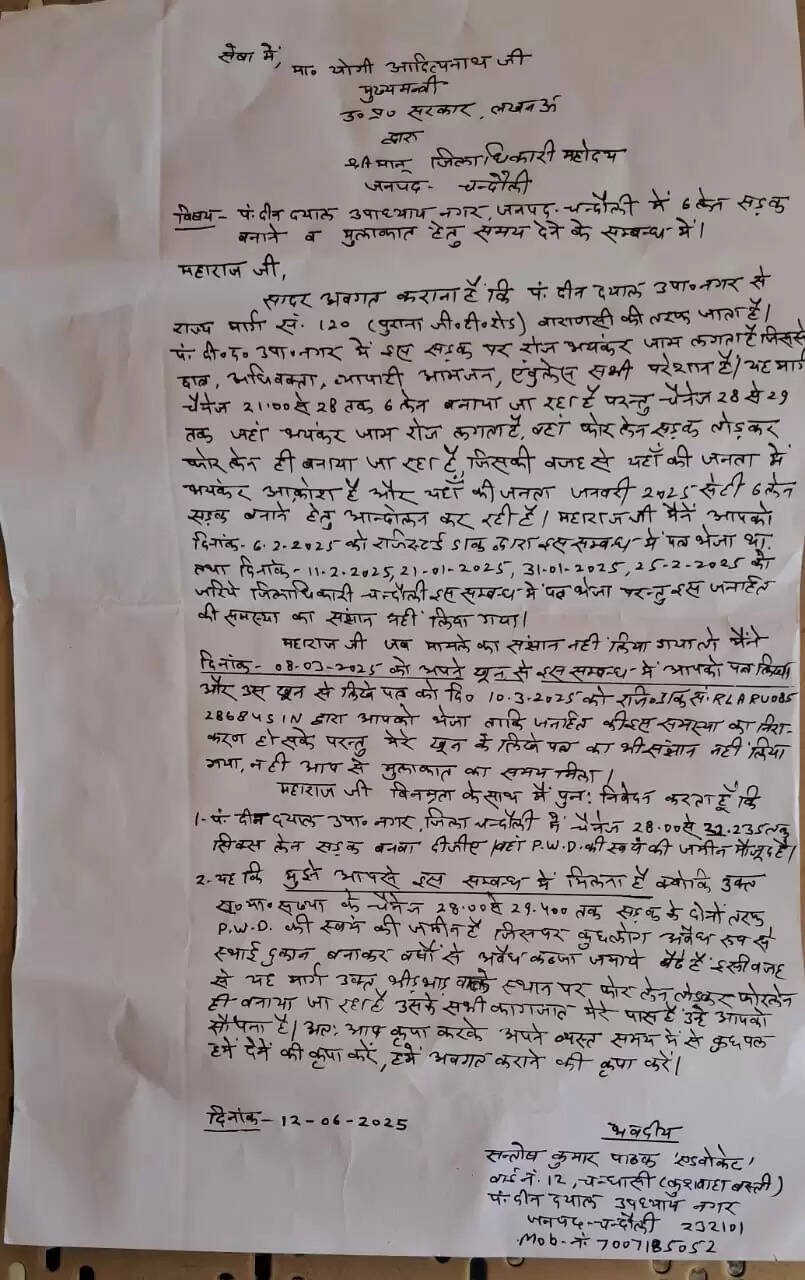 सेवा में,
मा० योगी आदित्यनाथ जी
मुख्यमन्त्री
उ० प्र० सरकार, लखनऊ
द्वारा
श्रीमान् जिलाधिकारी महोदय
जनपद- चन्दौली
विषय- पं. दीन दयाल उपाध्याय नगर, जनपद-चन्दौली में 6 लेन सड़क
बनाने व मुलाकात हेतु समय देने के सम्बन्ध में।
महाराज जी,
सादर अवगत कराना है कि पं. दीन दयाल उपा० नगर से
राज्य मार्ग सं. 120 (पुराना जी.टी.रोड) वाराणसी की तरफ जाता है।
पं. दी.द. उपा. नगर में इस सड़क पर रोज भयंकर जाम लगता है जिससे
छात्र, अधिवक्ता, व्यापारी आमजन, एंबुलेंस सभी परेशान है। यह मार्ग
चैनेज 21.00 से 28 तक 6 लेन बनाया जा रहा है परन्तु चैनेज 28 से 29
तक जहां भयंकर जाम रोज लगता है, वहां फोर लेन सड़क तोड़कर
फोर लेन ही बनाया जा रहा है, जिसकी वजह से यहाँ की जनता में
भयंकर आक्रोश है और यहाँ की जनता जनवरी 2025 से ही 6 लेन
सड़क बनाने हेतु आन्दोलन कर रही है। महाराज जी मैनें आपको
दिनांक- 6.2.2025 को रजिस्टर्ड डाक द्वारा इस सम्बन्ध में पत्र भेजा था.
तथा दिनांक- 11.2.2025, 21-01-2025, 31-01-2025, 25-2-2025 को
जरिये जिलाधिकारी चन्दौली इस सम्बन्ध में पत्र भेजा परन्तु इस जनहित
की समस्या का संज्ञान नहीं लिया गया।
महाराज जी जब मामले का संज्ञान नहीं लिया गया तो मैंने
दिनांक- 08-03-2025 को अपने खून से इस सम्बन्ध में आपको पत्र लिखा
और उस खून से लिखे पत्र को दि० 10.3.2025 को रजि. डाक सं. RLARU085
286845IN द्वारा आपको भेजा ताकि जनहित की इस समस्या का निरा-
करण हो सके परन्तु मेरे खून के लिखे पत्र का भी संज्ञान नहीं लिया
गया, न ही आप से मुलाकात का समय मिला।
महाराज जी विनम्रता के साथ मैं पुनः निवेदन करता हूँ कि
1- पं. दीन दयाल उपा० नगर, जिला चन्दौली में चैनेज 28.00 से 32.235 तक
सिक्स लेन सड़क बनवा दीजीए वहां P.W.D. की स्वयं की जमीन मौजूद है।
2- यह कि मुझे आपसे इस सम्बन्ध में मिलना है क्योंकि उक्त
चैनेज 28.00 से 29.400 तक सड़क के दोनों तरफ
P.W.D. की स्वयं की जमीन है जिसपर कुछ लोग अवैध रूप से
स्थाई दुकान बनाकर वर्षों से अवैध कब्जा जमाये बैठे हैं इसी वजह
से यह मार्ग उक्त भीड़भाड़ वाले स्थान पर फोर लेन तोड़कर फोर लेन
ही बनाया जा रहा है उसके सभी कागजात मेरे पास है उन्हें आपको
सौंपना है। अतः आप कृपा करके अपने व्यस्त समय में से कुछ पल
हमें देने की कृपा करें, हमें अवगत कराने की कृपा करें।
दिनांक- 12-06-2025
भवदीय
सन्तोष कुमार पाठक 'एडवोकेट'
वार्ड नं. 12, चन्धासी (कुशवाहा बस्ती)
पं. दीन दयाल उपाध्याय नगर
जनपद-चन्दौली 232101
Mob-नं. 7007185052